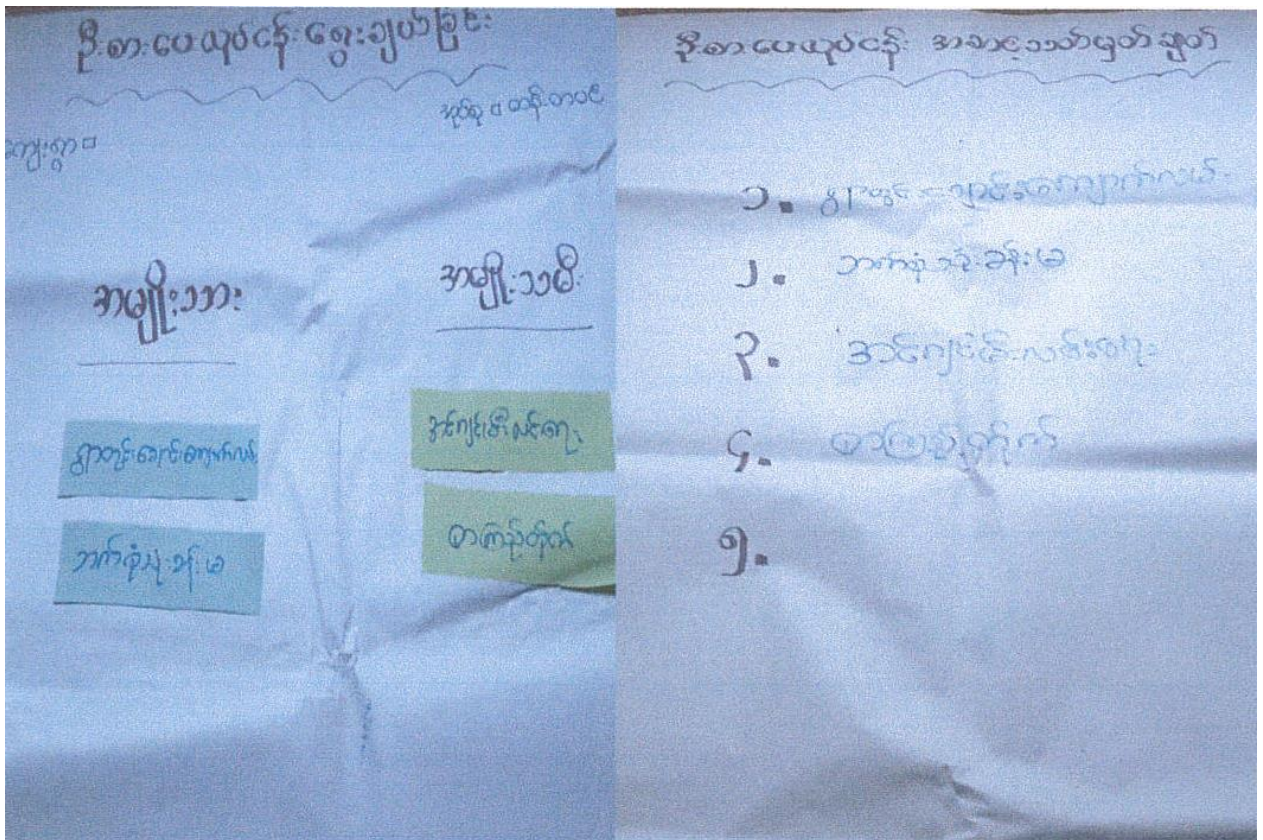 ဦးစားပေးလုပ်ငန်းရွေးချယ်ခြင်း
ကျေးရွာ။
အုပ်စု။ တနီးတပင်
အမျိုးသား
အမျိုးသမီး
ရွာတွင်းချောင်းကျောက်လမ်း
ဘက်စုံသုံးခန်းမ
အင်ဂျင်မီးလင်းရေး
စာကြည့်တိုက်
ဦးစားပေးလုပ်ငန်း အဆင့်သတ်မှတ်ချက်
၁. ရွာတွင်းချောင်းကျောက်လမ်း
၂. ဘက်စုံသုံးခန်းမ
၃. အင်ဂျင်မီးလင်းရေး
၄. စာကြည့်တိုက်
၅.